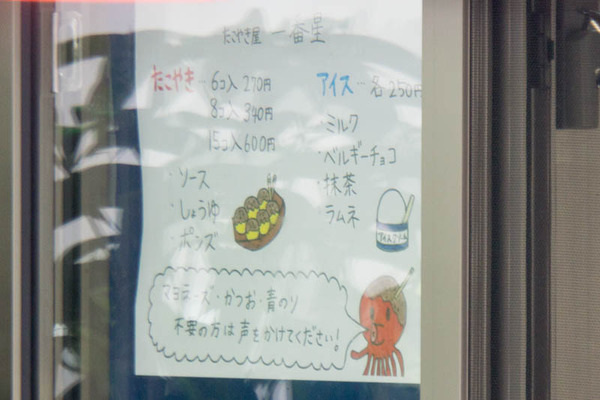 たこやき屋 一番星
たこやき 〜 6コ入 270円
8コ入 340円
15コ入 600円
・ソース
・しょうゆ
・ポンズ
アイス 〜 各 250円
・ミルク
・ベルギーチョコ
・抹茶
・ラムネ
アイスクリーム
マヨネーズ・かつお・青のり
不要の方は声をかけてください!